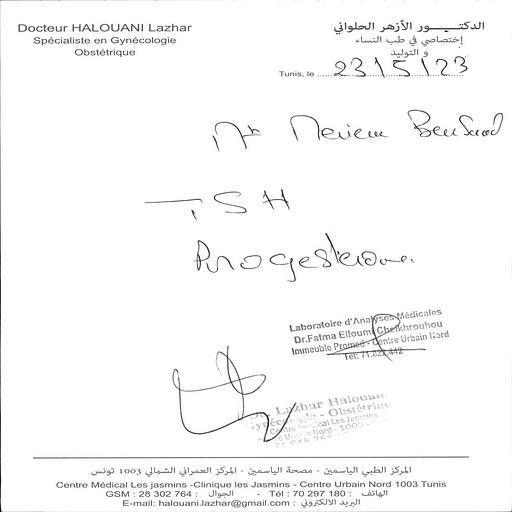 Docteur HALOUANI Lazhar
Spécialiste en Gynécologie
Obstétrique
الدكتـــــور الأزهر الحلواني
إختصاصي في طب النساء
و التوليد
Tunis, le 23/5/23
Meriem
TSH
Progesterone
Laboratoire d'Analyses Médicales
Dr.Fatma Elloumi Cheikhrouhou
Immeuble Promed - Centre Urbain Nord
Tél: 71.822.442
Dr. Lazhar Halouani
Gynécologie - Obstétrique
Centre Médical Les Jasmins
Nord - 1003
المركز الطبي الياسمين - مصحة الياسمين - المركز العمراني الشمالي 1003 تونس
Centre Médical Les jasmins -Clinique les Jasmins - Centre Urbain Nord 1003 Tunis
GSM : 28 302 764 : الجوال - Tél : 70 297 180 : الهاتف
E-mail: halouani.lazhar@gmail.com : البريد الالكتروني